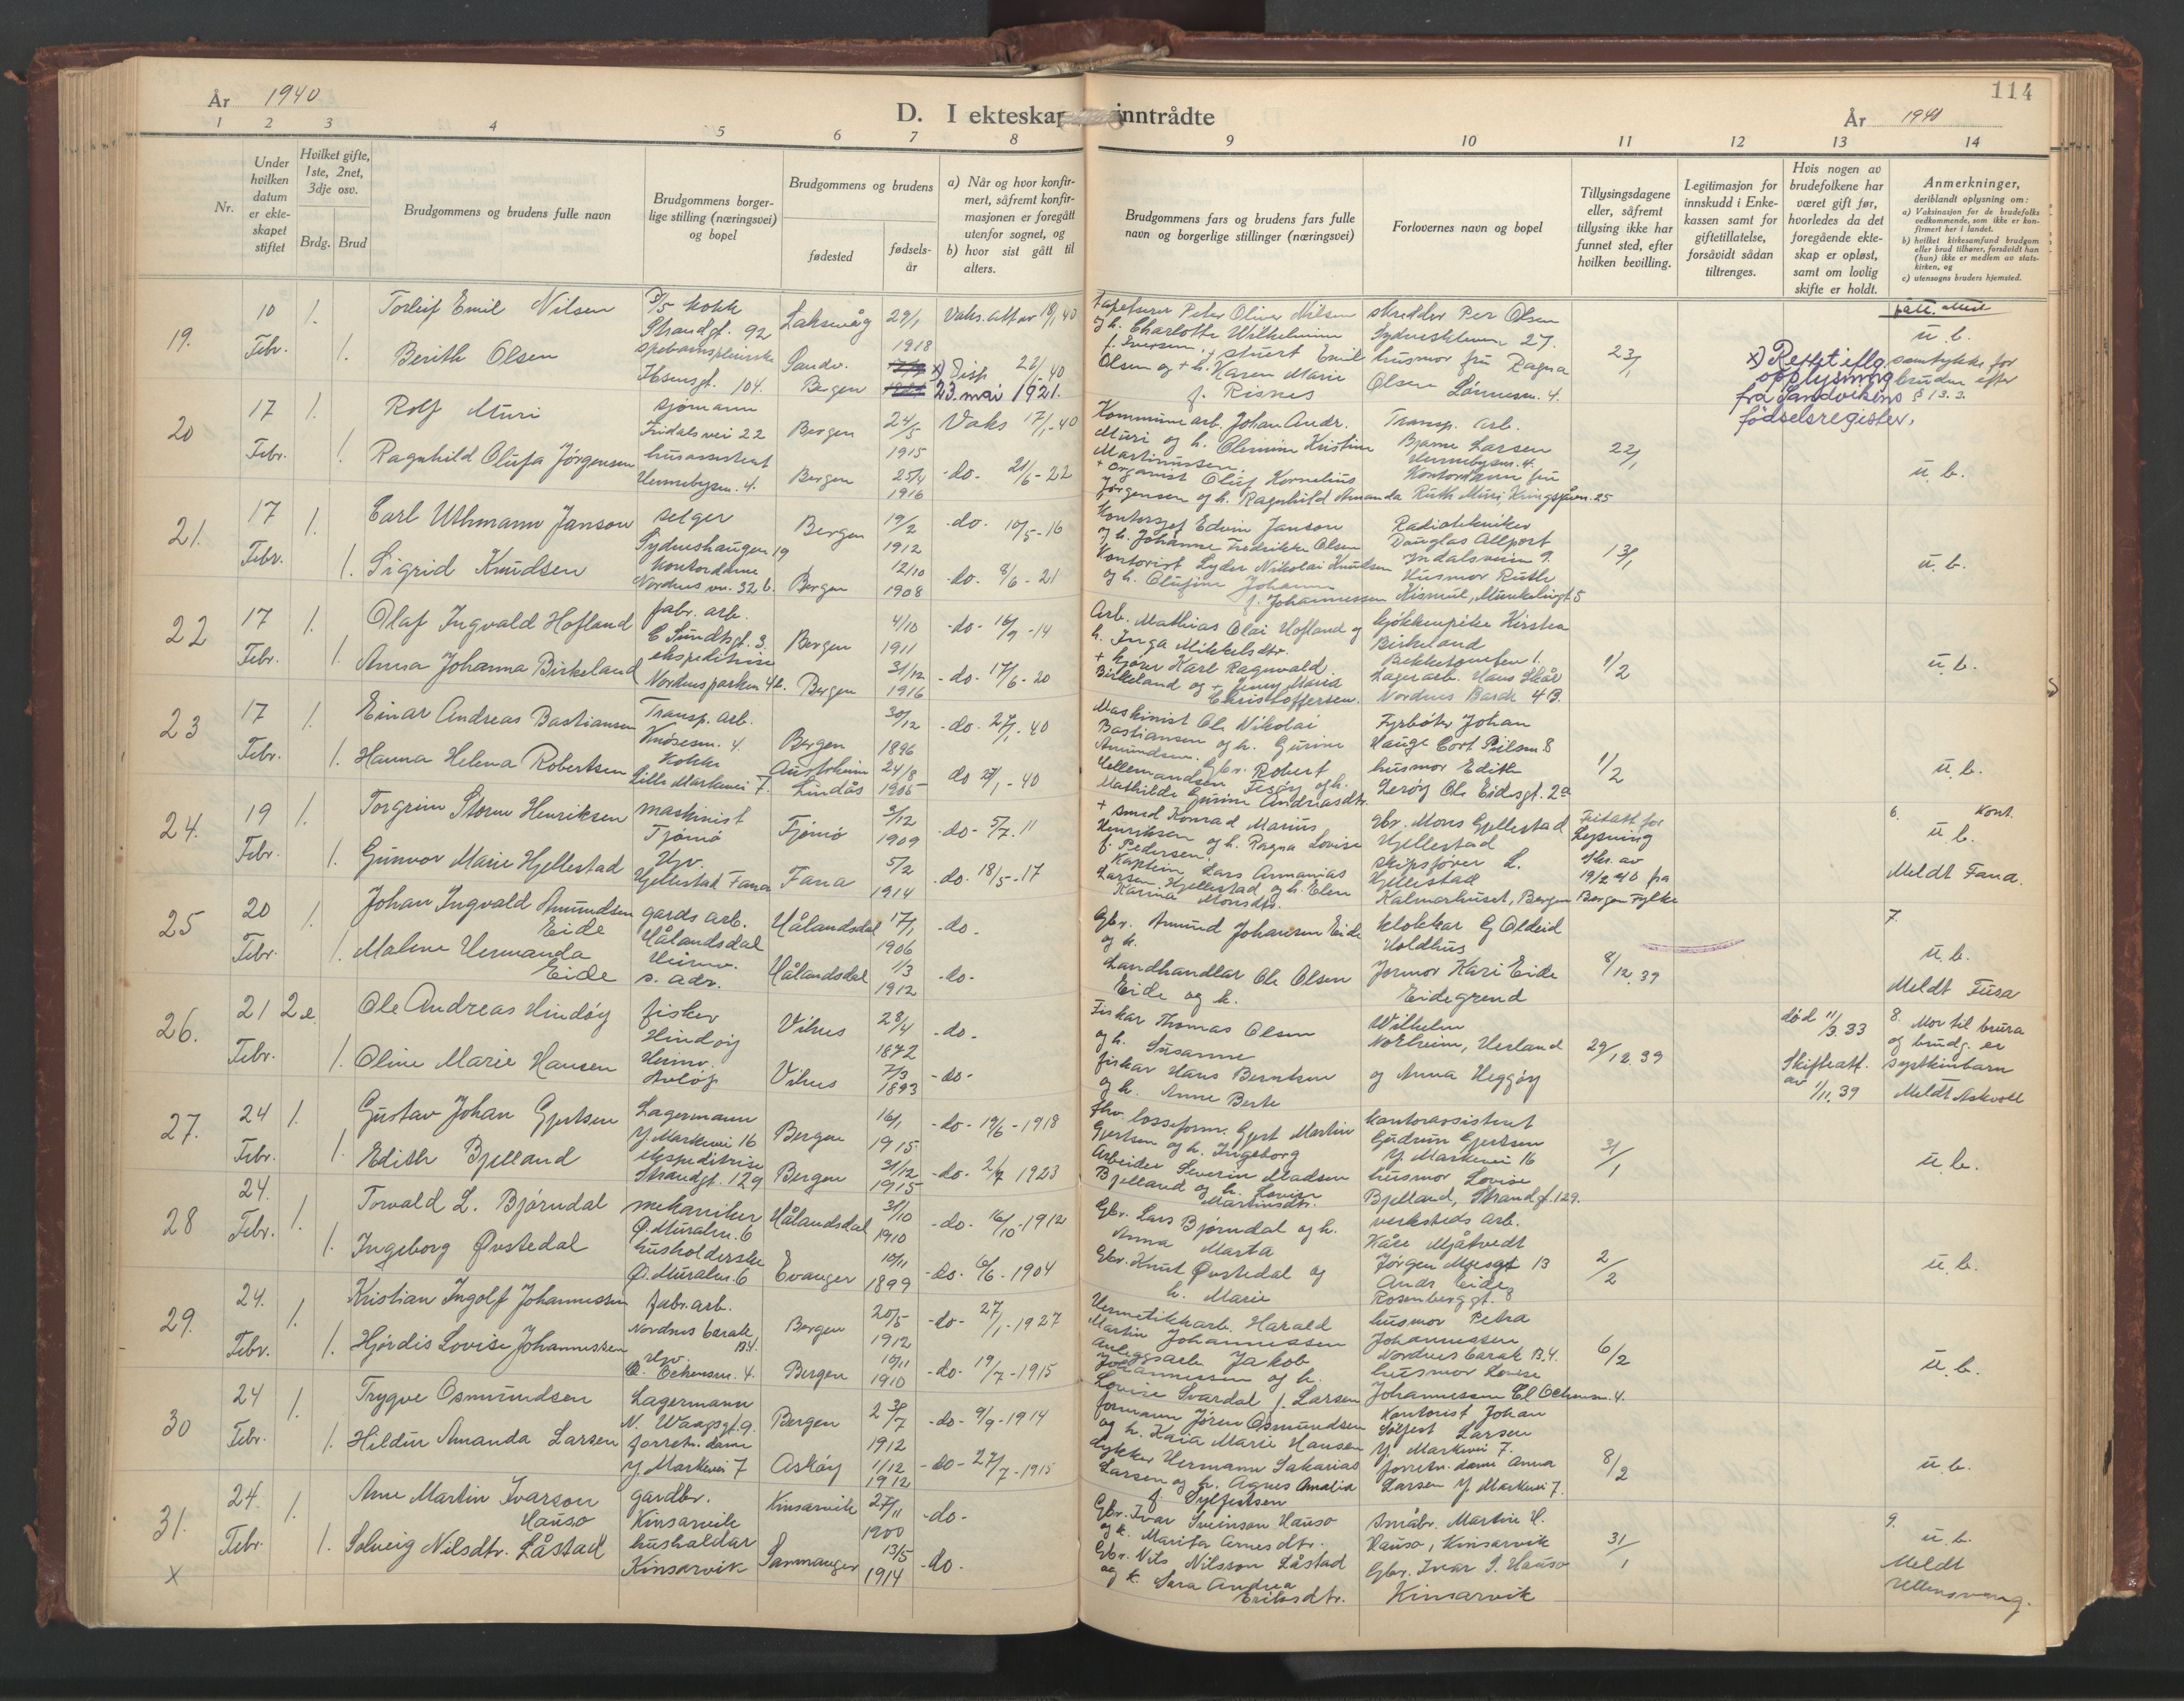 114
År 1940
D. I ekteskap inntrådte
År 1940
1 2 3 4 5 6 7 8 9 10 11 12 13 14
Nr.
Under hvilken datum er ekteskapet stiftet
Hvilket gifte, 1ste, 2net, 3dje osv.
Brdg. Brud
Brudgommens og brudens fulle navn
Brudgommens borgerlige stilling (næringsvei) og bopel
Brudgommens og brudens
fødested
fødselsår
a) Når og hvor konfirmert, såfremt konfirmasjonen er foregått utenfor sognet, og
b) hvor sist gått til alters.
Brudgommens fars og brudens fars fulle navn og borgerlige stillinger (næringsvei)
Forlovernes navn og bopel
Tillysingsdagene eller, såfremt tillysing ikke har funnet sted, efter hvilken bevilling.
Legitimasjon for innskudd i Enkekassen samt for giftetillatelse, forsåvidt sådan tiltrenges.
Hvis nogen av brudefolkene har været gift før, hvorledes da det foregående ekteskap er opløst, samt om lovlig skifte er holdt.
Anmerkninger,
deriblandt oplysning om:
a) Vaksinasjon for de brudefolks vedkommende, som ikke er konfirmert her i landet.
b) hvilket kirkesamfund brudgom eller brud tilhører, forsåvidt han (hun) ikke er medlem av statskirken, og
c) utensogns bruders hjemsted.
19. 10 Febr. 1.
Torleif Emil Nilsen
kokk
Strandgt. 92
Laksevåg 29/1 1918
Vaks. att av 18/1 40
Peter Oliver Nilsen
og h. Charlotte Wilhelmine
f. Iversen
skredder Per Olsen
Sydneskleven 27.
23/1
u. b.
1. Berith Olsen
Ibsensgt. 104.
Sandv. Bergen
x) Disp 22/1-40
23. mai 1921.
stuert Emil
Olsen og + h. Karen Marie
f. Risnes
husmor fru Ragna
Olsen Lønnesm. 4.
x) Rettet iflg.
opplysning
fra Sandvikens
fødselsregister.
samtykke for
bruden efter
§ 13. 2.
20 17 Febr. 1.
Rolf Muri
sjømann
Fridalsvei 22
Bergen 24/5 1915
Vaks 17/1-40
Kommune arb. Johan Andr.
Muri og h. Olemine Kristine
Martinussen.
Transp. arb.
Bjarne Larsen
Hennebysm. 4.
22/1
u. b.
1. Ragnhild Olufa Jørgensen
husassistent
Hennebysm. 4.
Bergen 25/4 1916
-do- 21/6-22
+ Organist Oluf Kornelius
Jørgensen og h. Ragnhild Amanda
Kontordame fru
Ruth Muri Kringsjåvn. 25
21. 17 Febr. 1.
Carl Uthmann Janson
selger
Sydneshaugen 19
Bergen 19/2 1912
-do- 10/5-16
Kontorsjef Edvin Janson
og h. Johanne Fredrikke Olsen
Radiotekniker
Douglas Allport
Indalsveien 9.
13/1
u. b.
1. Sigrid Knudsen
Kontordame
Nordnes vn. 32 b.
Bergen 12/10 1908
-do- 8/6-21
Kontorist Lyder Nikolai Knudsen
og h. Olufine Johanne
f. Johannessen
Husmor Ruth
Kismul, Munkelingt 5
22 17 Febr. 1.
Olaf Ingvald Hofland
fabr. arb.
C Sundtsgt. 3.
Bergen 4/10 1911
-do- 16/7-14
Arb. Mathias Olai Hofland og
h. Inga Mikkelsdtr.
Kjøkkenpike Kirsten
Birkeland
1/2
u. b.
1. Anna Johanna Birkeland
ekspeditrise
Nordnesparken 4b.
Bergen 31/12 1916
-do- 17/6-20
+ kjører Karl Ragnvald
Birkeland og + Jenny Maria
Christoffersen.
Lagerarb. Hans Skår
Nordnes Barak 4 B.
23 17 Febr. 1.
Einar Andreas Bastiansen
Transp. arb.
Knøsesm. 4.
Bergen 30/12 1896
-do- 27/1-40
Maskinist Ole Nikolai
Bastiansen og h. Gurine
Amundsen.
Fyrbøter Johan
Hauge Cort Piilsm 8
1/2
u. b.
1. Hanna Helena Robertsen
Kokke
Lille Markevei 7.
Austrheim Lindås 24/8 1905
do 27/1-40
Gbr. Robert
Hellemandsen Fesøy og h.
Mathilde Gurine Andreasdtr.
husmor Edith
Zerøy Ole Eidesgt. 2a
24. 19 Febr. 1.
Torgrim Storm Henriksen
maskinist
Tjømø
Tjømø 3/12 1909
-do- 5/7. 11
+ smed Konrad Marius
Henriksen og h. Ragna Lovise
f. Pedersen.
Gbr. Mons Gjellestad
Hjellestad
Fritatt for
Lysning
Skr. av
19/2 40 fra
Bergen Fylke
6. Kont.
u b.
Meldt Fana.
1. Gunvor Marie Hjellestad
Hjv.
Hjellestad Fana
Fana 5/2 1914
-do- 18/5-17
Kaptein Lars Armanias
Larsen Hjellestad og h. Elen
Karina Monsdtr.
skipsfører L.
Hjellestad
Kalmarhuset, Bergen
25 20 Febr. 1.
Johan Ingvald Amundsen
Eide
gards arb.
Hålandsdal
Hålandsdal 17/1 1906
-do-
Gbr. Amund Johansen Eide
og k.
klokkar G Oldeid
Holdhus
8/12. 39
7.
u. b.
Meldt Fusa
1. Malene Hermanda
Eide
Heimv.
s. adr.
Hålandsdal 1/3 1912
-do-
Landhandlar Ole Olsen
Eide og k.
Jormor Kari Eide
Eidegrend
26. 21 Febr. 2e.
Ole Andreas Hindøy
fisker
Hindøy
Vilnes 28/4 1872
-do-
Fiskar Thomas Olsen
og h. Susanne
Wilhelm
Norheim, Herland
29/12. 39
død 11/3. 33
Skifteatt.
av 1/11. 39
8. Mor til brura
og brudg. er
syskinbarn
Meldt Askvoll
1. Oline Marie Hansen
Heimv.
Vilnes 7/3 1893
-do-
fiskar Hans Berntsen
og h. Anne Berte
og Anna Heggøy
27. 24 Febr. 1.
Gustav Johan Gjertsen
Lagermann
Y Markevei 16
Bergen 16/1 1915
-do- 19/6-1918
fhv. losseform. Gjert Martin
Gjertsen og h. Ingeborg
kontorassistent
Gudrun Gjertsen
Y. Markevei 16
31/1
u. b.
1. Edith Bjelland
ekspeditrise
Strandgt. 129
Bergen 31/12 1915
-do- 2/7 1923
Arbeider Severin Madsen
Bjelland og h. Lovise
Martinsdtr.
husmor Lovise
Bjelland, Strandgt. 129.
28 24. Febr. 1.
Torvald L. Bjørndal
mekaniker
Ø. Muralm. 6
Hålandsdal 31/10 1910
-do- 16/10-1912
Gbr. Lars Bjørndal og h.
Anna Marta
verksteds arb.
Kåre Mjåtvedt
Jørgen Moesgt 13
2/2
u. b.
1. Ingeborg Øvstedal
husholderske
Ø. Muralm. 6
Evanger 10/11 1899
-do- 6/6-1904
Gbr. Knut Øvstedal og
h. Marie
Andr Eide
Rosenberggt. 8
29. 24. Febr. 1.
Kristian Ingolf Johannessen
fabr. arb.
Nordnes barak
B4.
Bergen 20/5 1912
-do- 27/1-1927
Hermetikkarb. Harald
Martin Johannessen
husmor Petra
Johannessen
Nordnes barak B.4.
6/2
u. b.
1. Hjørdis Lovise Johannessen
Hjv.
Bergen 10/11 1910
-do- 19/7-1915
Anleggsarb. Jakob
Johannessen og h.
Lovise Svardal f. Larsen
husmor Lovise
Johannessen
30 24 Febr. 1.
Trygve Osmundsen
Lagermann
N. Waagsgt. 9.
Bergen 1912
-do- 9/9-1914
formann Jøren Osmundsen
og h. Kaia Marie Hansen
Kontorist Johan
Sølfest Larsen
Y. Markevei 7.
8/2
u. b.
1. Hildur Amanda Larsen
forretn. dame
Y. Markevei 7
Askøy 1/12 1912
-do- 27/7-1915
dykker Hermann Sakarias
Larsen og h. Agnes Amalia
f. Sylfestsen
forretn. dame Anna
Larsen Y. Markevei 7.
31. 24. Febr. 1.
Arne Martin Ivarson
Hauso
gardbr.
Kinsarvik
Kinsarvik 27/11 1900
-do-
Gbr. Ivar Sveinson Hauso
og k. Marita Arnesdtr.
Småbr. Martin H.
Hauso, Kinsarvik
31/1
9.
u. b.
Meldt
Ullensvang.
x 1. Solveig Nilsdtr. Låstad
hushaldar
Kinsarvik
Samnanger 13/5 1914
-do-
Gbr. Nils Nilsson Låstad
og k. Sara Andrea
Eriksdtr.
Gbr. Ivar S. Hauso
Kinsarvik